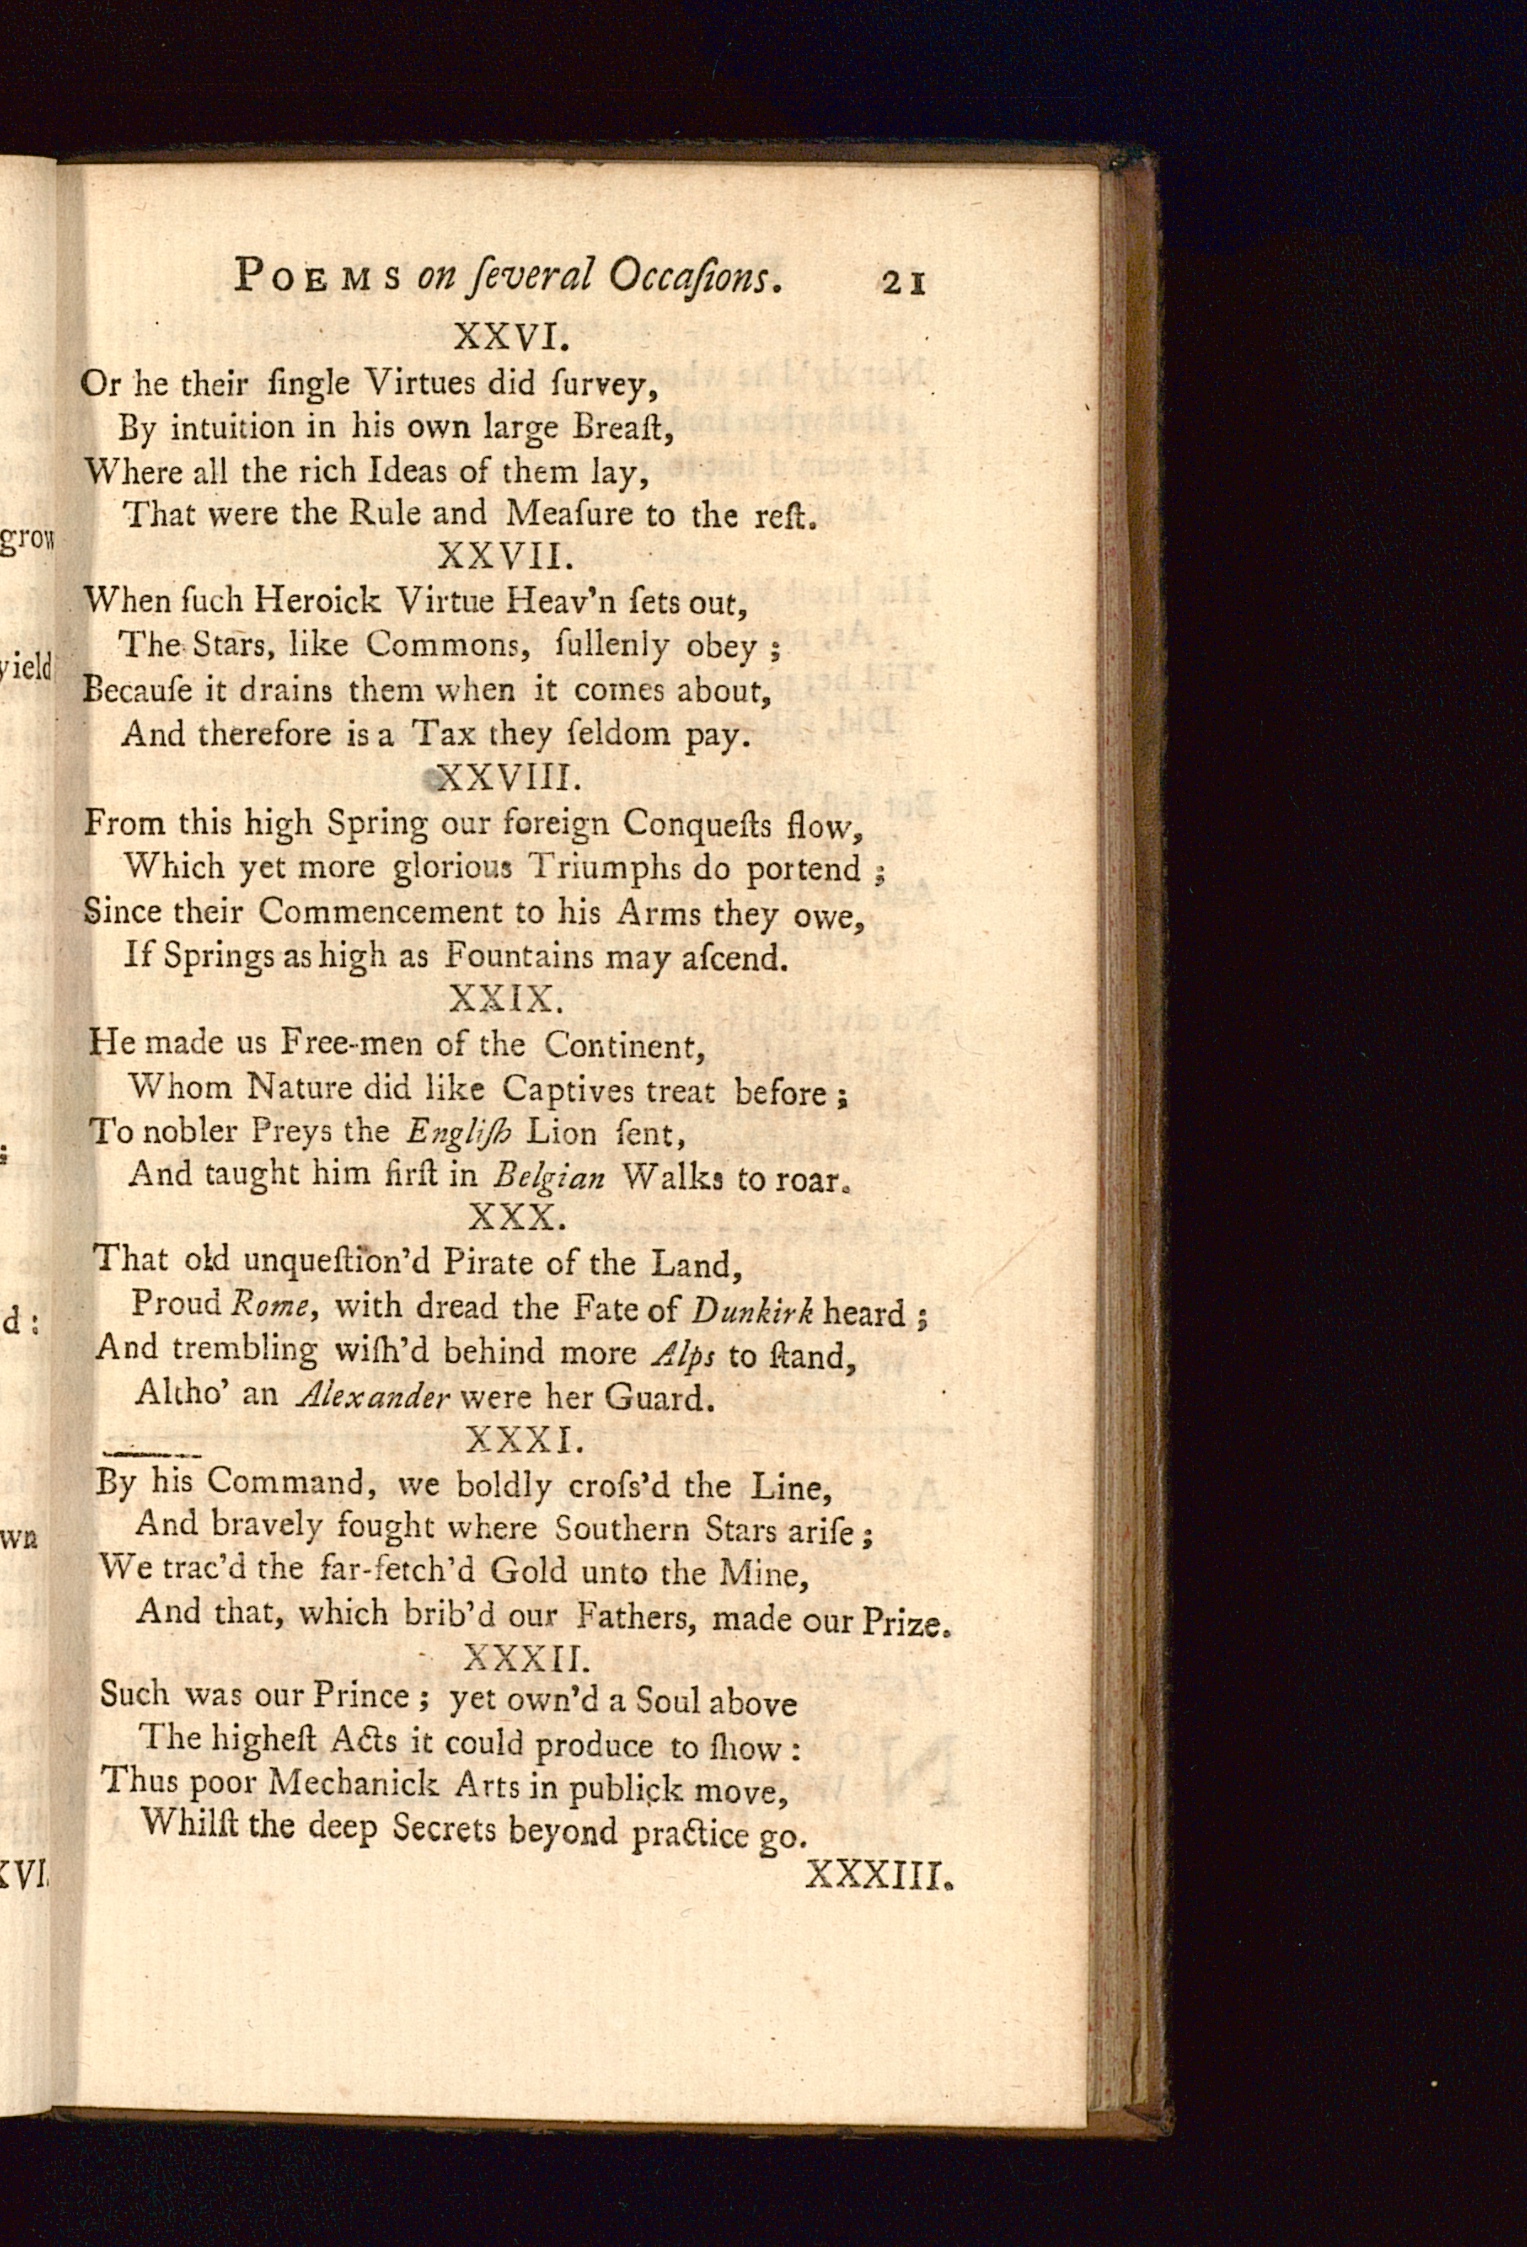 POEMS on ſeveral Occaſions. 21
XXVI.
Or he their ſingle Virtues did ſurvey,
By intuition in his own large Breaſt,
Where all the rich Ideas of them lay,
That were the Rule and Meaſure to the reſt.
XXVII.
When ſuch Heroick Virtue Heav'n ſets out,
The Stars, like Commons, ſullenly obey ;
Becauſe it drains them when it comes about,
And therefore is a Tax they ſeldom pay.
XXVIII.
From this high Spring our foreign Conqueſts flow,
Which yet more glorious Triumphs do portend ;
Since their Commencement to his Arms they owe,
If Springs as high as Fountains may aſcend.
XXIX.
He made us Free-men of the Continent,
Whom Nature did like Captives treat before ;
To nobler Preys the Engliſh Lion ſent,
And taught him firſt in Belgian Walks to roar.
XXX.
That old unqueſtion'd Pirate of the Land,
Proud Rome, with dread the Fate of Dunkirk heard ;
And trembling wiſh'd behind more Alps to ſtand,
Altho' an Alexander were her Guard.
XXXI.
By his Command, we boldly croſs'd the Line,
And bravely fought where Southern Stars ariſe ;
We trac'd the far-fetch'd Gold unto the Mine,
And that, which brib'd our Fathers, made our Prize.
XXXII.
Such was our Prince ; yet own'd a Soul above
The higheſt Acts it could produce to ſhow :
Thus poor Mechanick Arts in publick move,
Whilſt the deep Secrets beyond practice go.
XXXIII.
grow
yield
;
d :
wn
XVI.